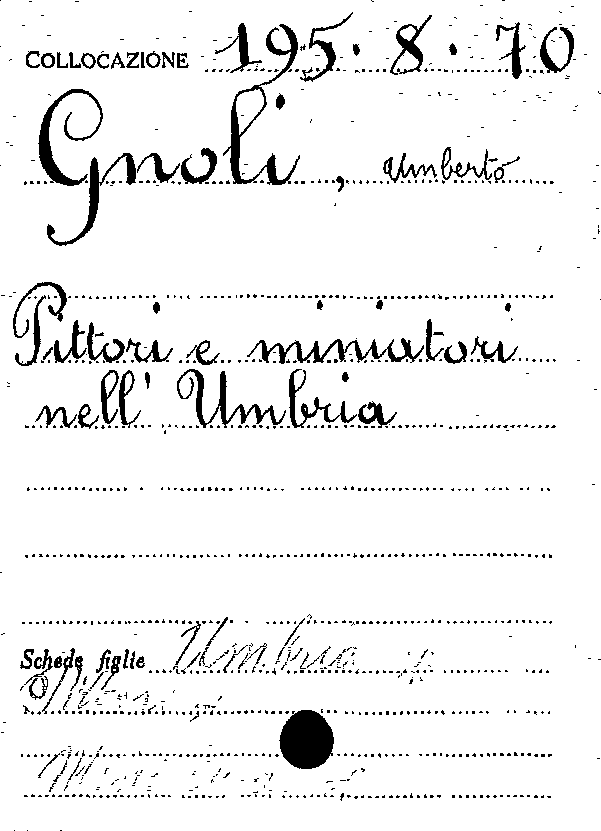 COLLOCAZIONE 195.8.70
Gnoli, Umberto
Pittori e miniatori
nell'Umbria
Schede figlie Umbria
Pittori